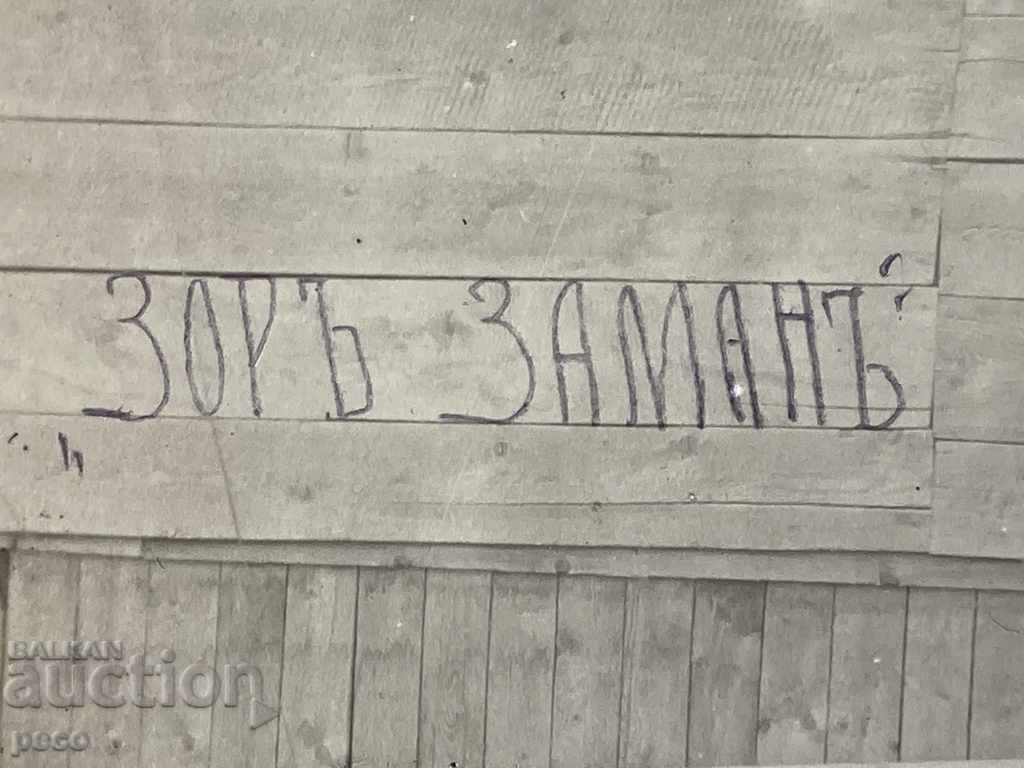 „ЗОРЪ ЗАМАНЪ“
BALKAN
auction
peso